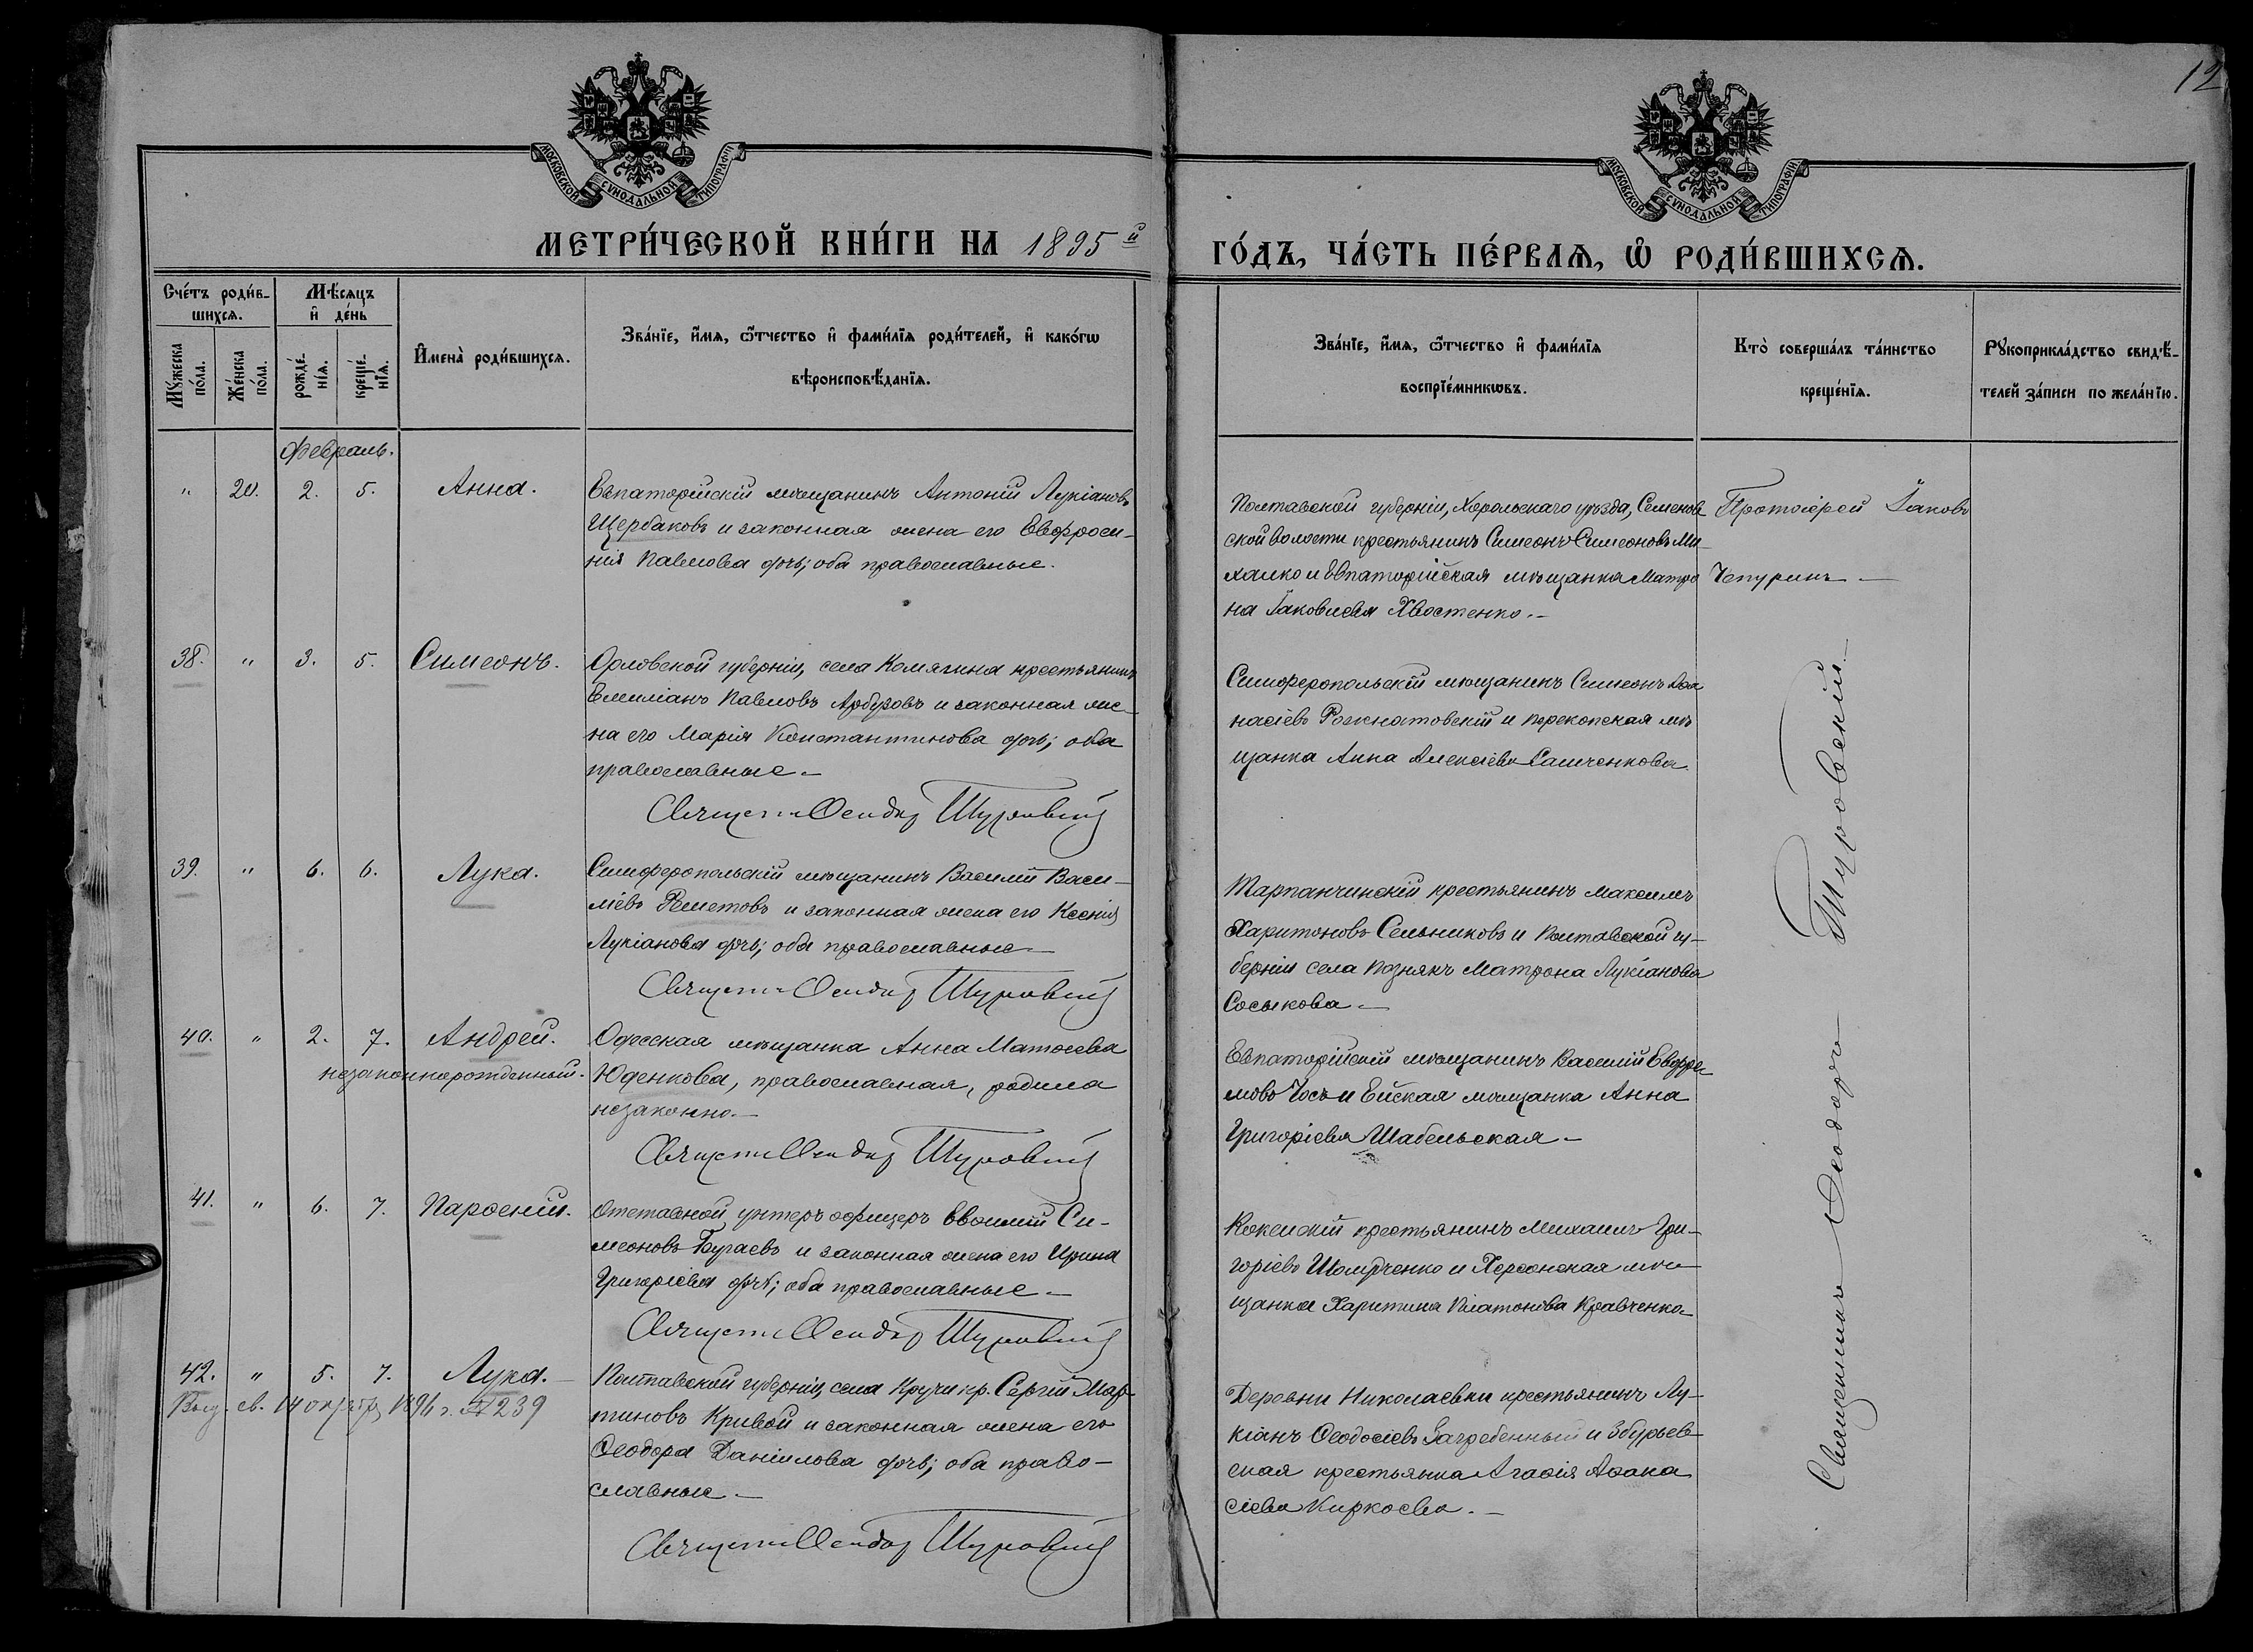 12
МОСКОВСКОЙ СѴНОДАЛЬНОЙ ТИПОГРАФІИ
МОСКОВСКОЙ СѴНОДАЛЬНОЙ ТИПОГРАФІИ
МЕТРИ́ЧЕСКОЙ КНИ́ГИ НА 1895й
ГО́ДЪ, ЧА́СТЬ ПЕ́РВАѦ, Ѡ҆ РОДИ́ВШИХСѦ.
Сче́тъ роди́в-
шихсѧ.
Мѣ́сѧцъ
и҆ де́нь
Мꙋ́жеска
по́ла.
Же́нска
по́ла.
рожде́-
нїѧ.
креще́-
нїѧ.
И҆мена̀ роди́вшихсѧ.
Зва́нїе, и҆́мѧ, ѻ҆́тчество и҆ фами́лїѧ роди́телей, и҆ како́гѡ
вѣроисповѣ́данїѧ.
Зва́нїе, и҆́мѧ, ѻ҆́тчество и҆ фами́лїѧ
воспрїе́мникѡвъ.
Кто̀ соверша́лъ та́инство
креще́нїѧ.
Рꙋкоприкла́дство свидѣ́-
телей за́писи по жела́нїю.
Февраль.
" 20. 2. 5. Анна.
Евпаторійскій мѣщанинъ Антоній Лукіановъ
Щербаковъ и законная жена его Евфроси-
нія Павлова дочь; оба православные.
Полтавской губерніи, Хорольскаго уѣзда, Семенов
ской волости крестьянинъ Симеонъ Симеоновъ Ми-
халко и Евпаторійская мѣщанка Матро
на Іаковлева Хвостенко.-
Протоіерей Іаковъ
Чепуринъ-
38. " 3. 5. Симеонъ.
Орловской губерніи, села Комягина крестьянинъ
Емиліанъ Павловъ Арбузовъ и законная же-
на его Марія Константинова дочь; оба
православные.-
Симферопольскій мѣщанинъ Симеонъ Аѳа
насіевъ Рожнатовскій и перекопская мѣ
щанка Анна Алексіева Сашченкова.
39. " 6. 6. Лука.
Симферопольскій мѣщанинъ Василій Васи-
ліевъ Решетовъ и законная жена его Ксенія
Лукіанова дочь; оба православные-
Тарпанчинскій крестьянинъ Максимъ
Харитоновъ Сельниковъ и Полтавской гу-
берніи села Познякъ Матрона Лукіанова
Сосыкова-
40. " 2. 7. Андрей.
незаконнорожденный.
Одесская мѣщанка Анна Матѳеева
Юденкова, православная, родила
незаконно.-
Евпаторійскій мѣщанинъ Василій Евфре
мовъ Чосъ и Ейская мѣщанка Анна
Григоріева Шабельская-
41. " 6. 7. Парѳеній.
Отставной унтеръ офицеръ Евѳимій Си-
меоновъ Бугаевъ и законная жена его Ирина
Григоріева дочь; оба православные-
крестьянинъ Михаилъ Гри-
горіевъ и Херсонская мѣ
щанка Харитина Платонова Кравченко
42. " 5. 7. Лука.-
Выд. св. 14 1896 г. № 239
Полтавской губерніи, села Кручи кр. Сергій Мар-
тиновъ Кривой и законная жена его
Ѳеодора Даніилова дочь; оба право-
славные-
Деревни Николаевки крестьянинъ Лу-
кіанъ Ѳеодосіевъ Загребенный и Збурьев-
ская крестьянка Агаѳія Аѳана
сіева Киркоева.-
Священникъ Ѳеодоръ Шуровскій-